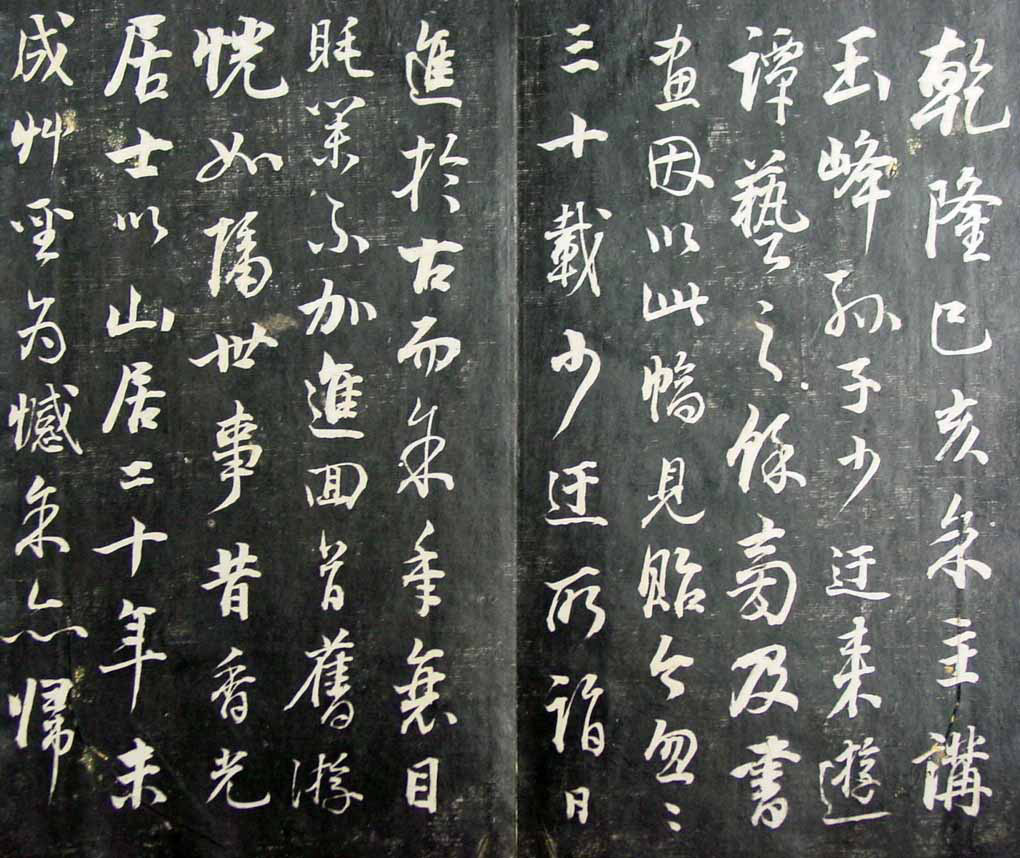 乾隆己亥余主講
玉峰孫子少迂来遊
譚藝之餘商及書
畫因以此幅見貽今忽〻
三十載少迂所詣日
進於古而余年衰目
眊業不加進回首舊游
恍如隔世事昔香光
居士以山居二十年未
成艸聖为憾余亦歸